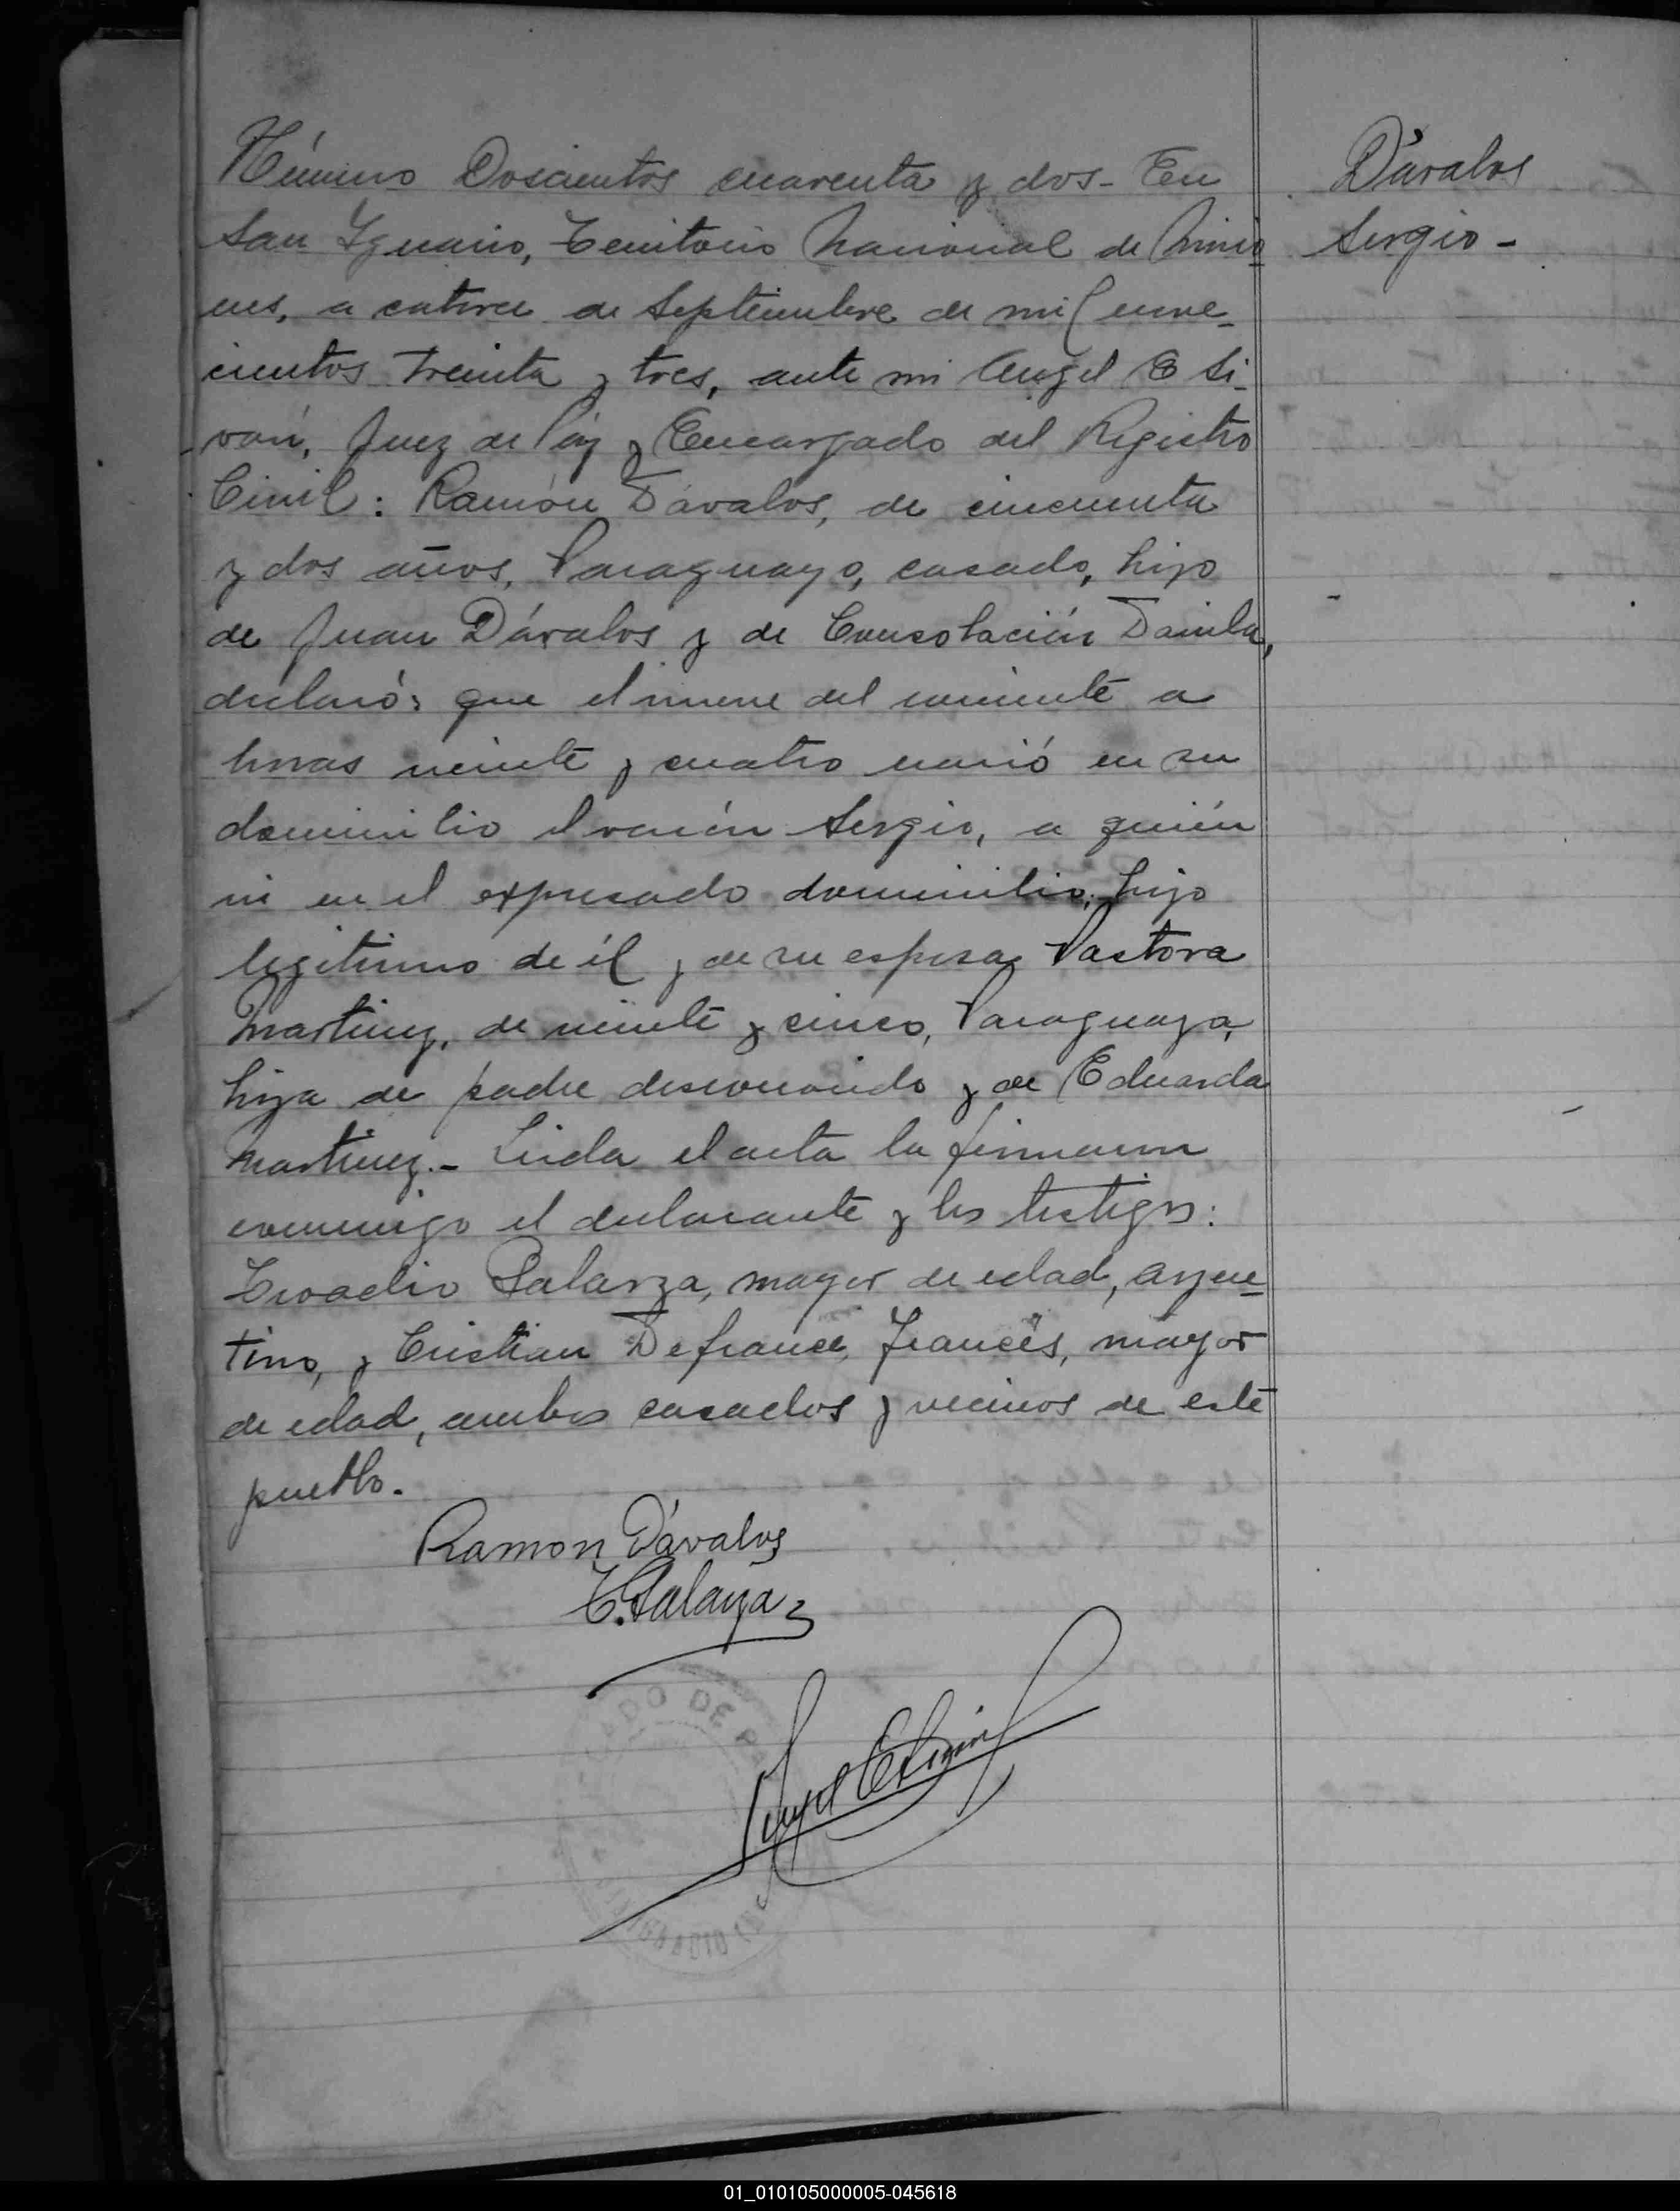 Dávalos
Sergio -
Número Doscientos cuarenta y dos - En
San Ignacio, Territorio Nacional de Misio
nes, a catorce de Septiembre de mil nove-
cientos treinta y tres, ante mi Angel E Si-
von, Juez de Paz y Encargado del Registro
Civil: Ramón Dávalos, de cincuenta
y dos años, Paraguayo, casado, hijo
de Juan Dávalos y de Consolación
declaró: que el nueve del corriente a
horas veinte y cuatro nació en su
domicilio el varón Sergio, a quién
vi en el expresado domicilio; hijo
legítimo de él y de su esposa Pastora
Martinez, de veinte y cinco, Paraguaya,
hija de padre desconocido y de Eduarda
Martinez. - Leida el acta la firmaron
conmigo el declarante y los testigos:
Galarza, mayor de edad, argen-
tino, y Cristian Defrance, francés, mayor
de edad, ambos casados y vecinos de este
pueblo.
Ramon Dávalos
ADO DE PA
Angel E
01_010105000005-045618